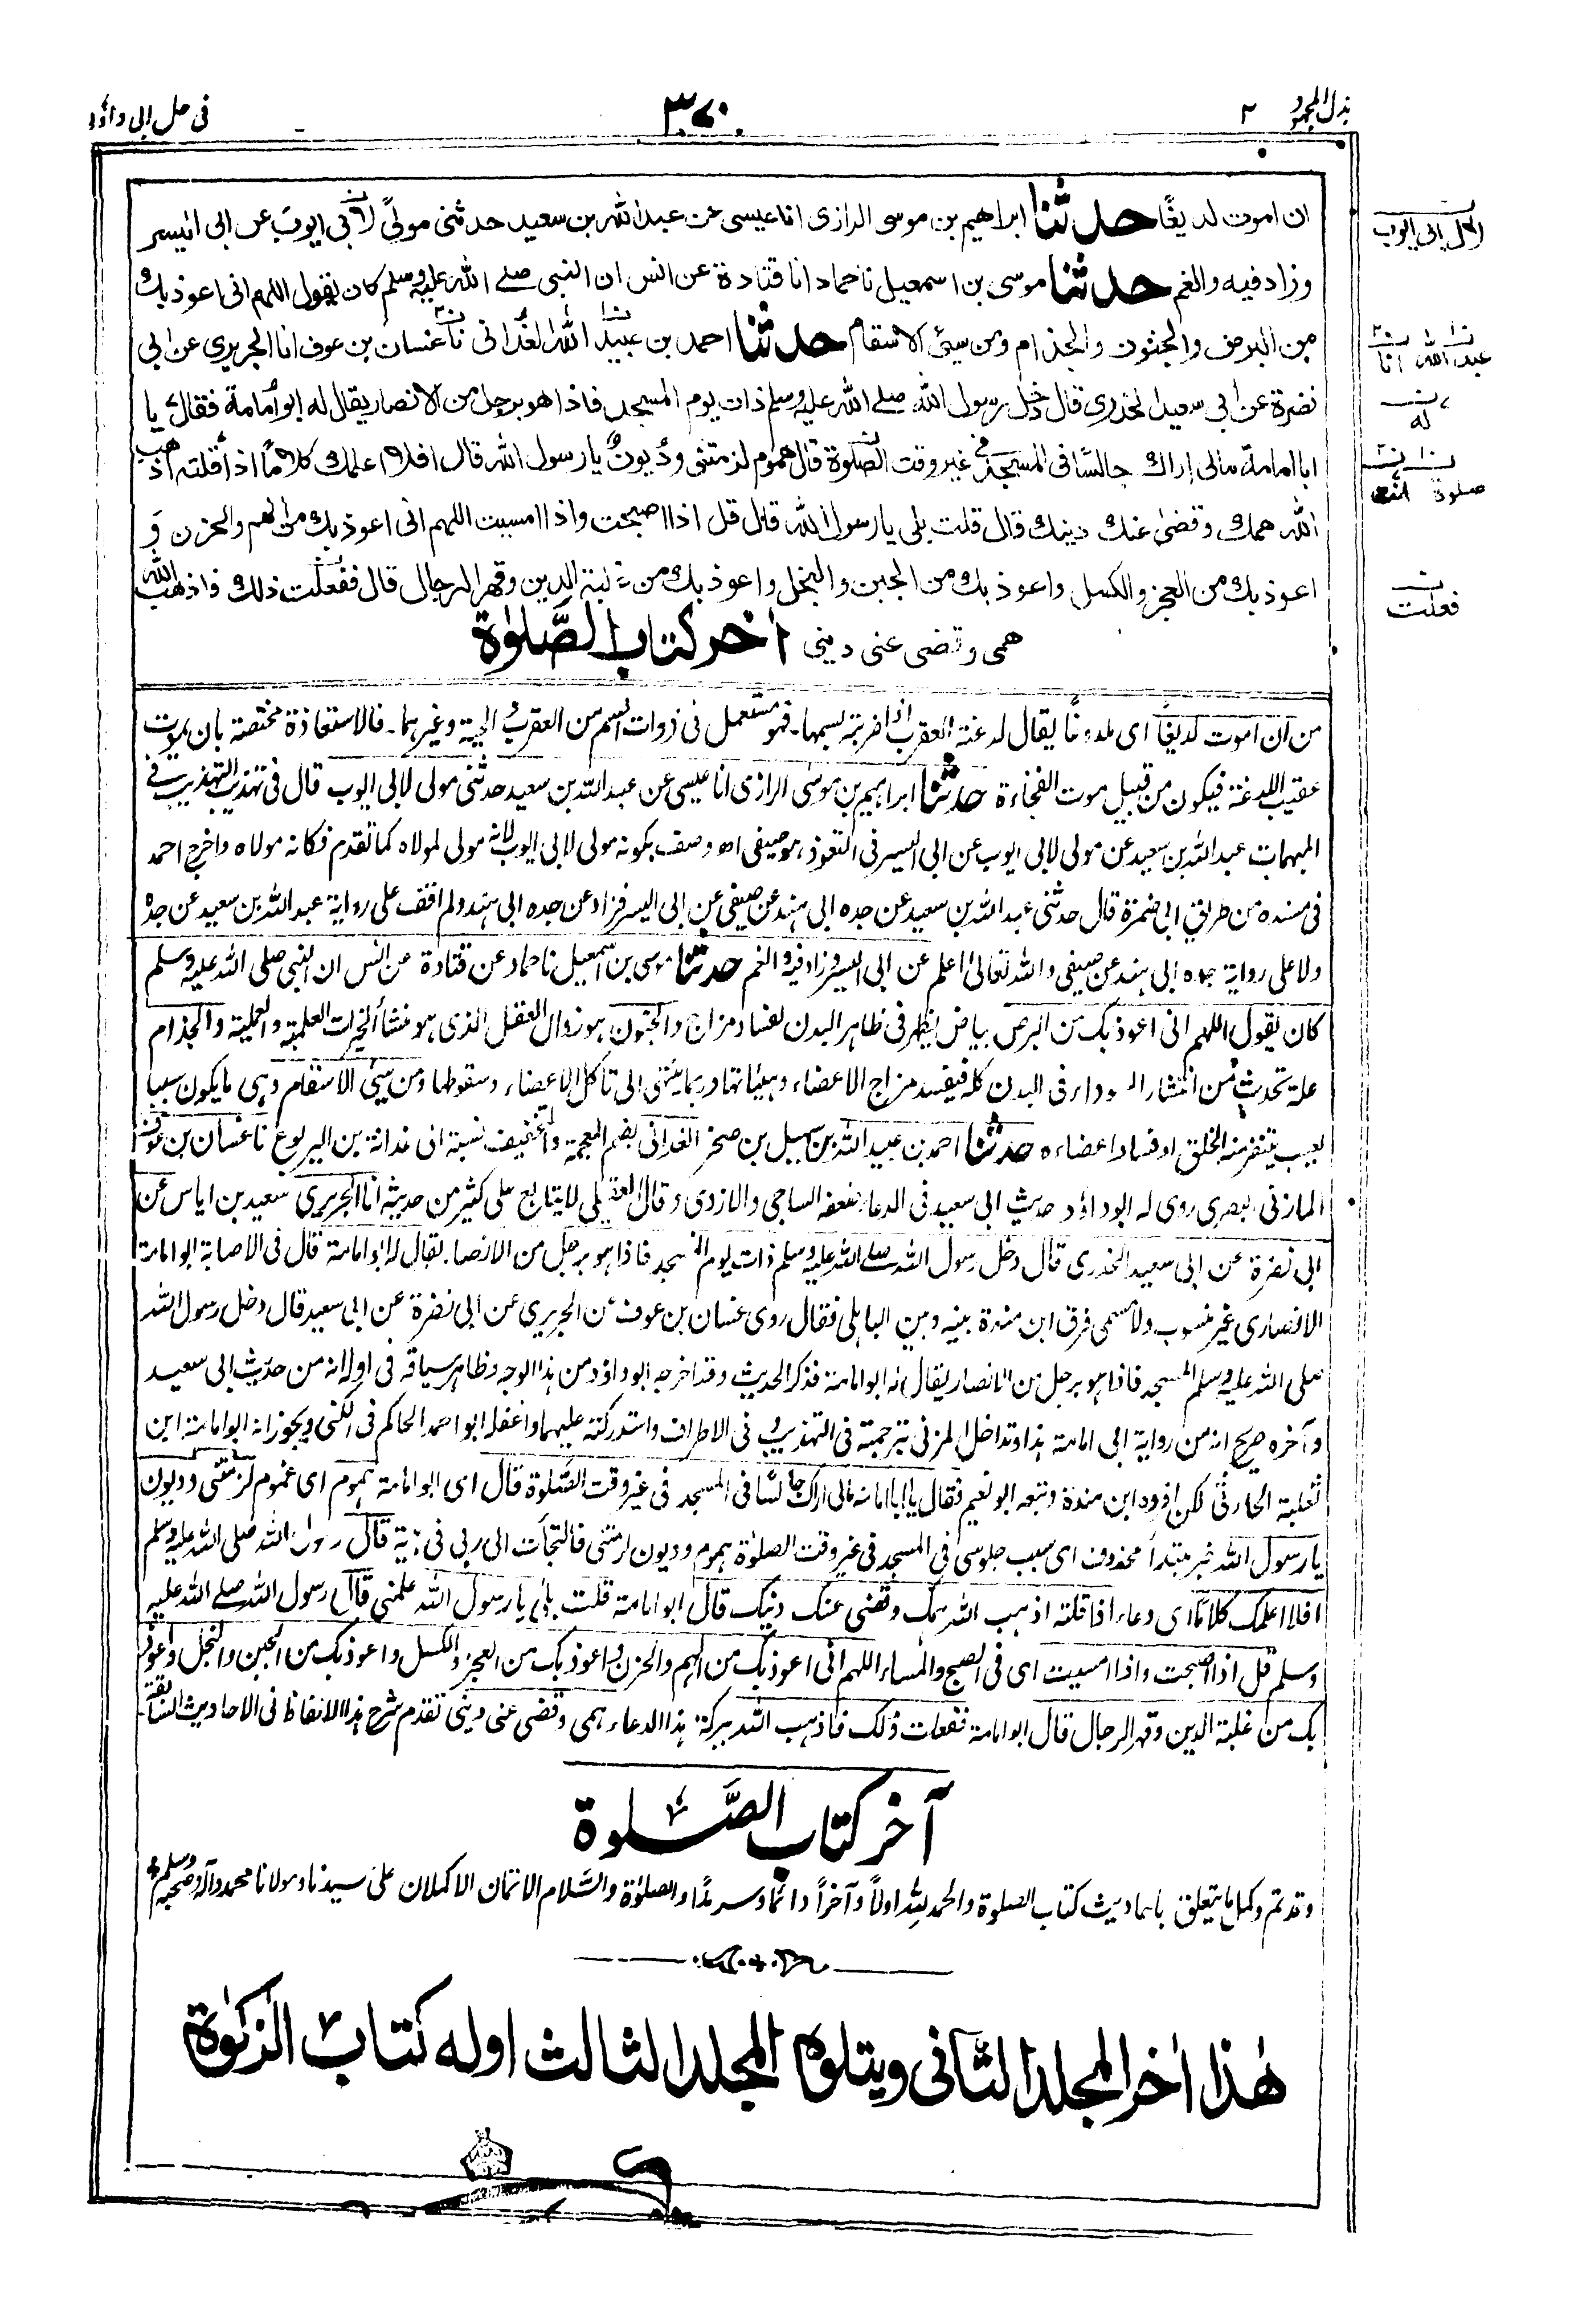 بذل المجهود ٢
٣٧٠
فى حل ابى داؤد
ان اموت لديغًا حدثنا ابراهيم بن موسى الرازى انا عيسى عن عبد الله بن سعيد حدثنى مولىً لأبى ايوب عن ابى اليسر
وزاد فيه والغم حدثنا موسى بن اسمعيل نا حماد انا قتادة عن انس ان النبى صلى الله عليه وسلم كان يقول اللهم انى اعوذ بك
من البرص والجنون والجذام ومن سيئ الاسقام حدثنا احمد بن عبيد الله الغُدانى نا غسان بن عوف انا الجريرى عن ابى
نضرة عن ابى سعيد الخدرى قال دخل رسول الله صلى الله عليه وسلم ذات يوم المسجد فاذا هو برجل من الانصار يقال له ابو أمامة فقال يا
ابا امامة مالى اراك جالسًا فى المسجد فى غير وقت الصلوة قال هموم لزمتنى وديون يا رسول الله قال افلا اعلمك كلامًا اذا قلته اذهب
الله همك وقضى عنك دينك قال قلت بلى يا رسول الله قال قل اذا اصبحت واذا امسيت اللهم انى اعوذ بك من الهم والحزن و
اعوذ بك من العجز والكسل واعوذ بك من الجبن والبخل واعوذ بك من غلبة الدين وقهر الرجال قال ففعلت ذلك فاذهب الله
همى وقضى عنى دينى اخر كتاب الصَّلوٰة
لأل ابى ايوب
عبد الله انا
له
صلوة
فعلت
من ان اموت لديغًا اى ملدوغًا يقال لدغته العقرب اذا ضربته بسمها۔ فهو مستعمل فى ذوات السم من العقرب والحية وغيرهما۔ فالاستعاذة مختصة بان يموت
عقيب اللدغة فيكون من قبيل موت الفجاءة حدثنا ابراهيم بن موسى الرازى انا عيسى عن عبد الله بن سعيد حدثنى مولى لابى ايوب قال فى تهذيب التهذيب فى
المبهمات عبد الله بن سعيد عن مولى لابى ايوب عن ابى اليسر فى التعوذ، هو صيفى اھ وصف بكونه مولى لابى ايوب لانه مولى لمولاه كما تقدم فكانه مولاه واخرج احمد
فى مسنده من طريق ابى ضمرة قال حدثنى عبد الله بن سعيد عن جده ابى هند عن صيفى عن ابى اليسر فزاد عن جده ابى هند ولم اقف على رواية عبد الله بن سعيد عن جده
ولا على رواية جده ابى هند عن صيفى والله تعالى اعلم عن ابى اليسر وزاد فيه والغم حدثنا موسى بن اسمعيل نا حماد عن قتادة عن انس ان النبى صلى الله عليه وسلم
كان يقول اللهم انى اعوذ بك من البرص بياض يظهر فى ظاهر البدن لفساد مزاج والجنون هو زوال العقل الذى هو منشأ الخيرات العلمية والعملية والجذام
علة تحدث من انتشار السوداء فى البدن كله فيفسد مزاج الاعضاء وهيئاتها وربما ينتهى الى تأكل الاعضاء وسقوطها ومن سيئ الاسقام وهى ما يكون سببا
لعيب يتنفر منه الخلق او فساد اعضاءه حدثنا احمد بن عبيد الله بن سهيل بن صخر الغدانى بضم المعجمة والتخفيف نسبة الى غدانة بن اليربوع نا غسان بن عوف
المازنى البصرى روى له ابو داؤد حديث ابى سعيد فى الدعاء ضعفه الساجى والازدى وقال العقيلى لا يتابع على كثير من حديثه انا الجريرى سعيد بن اياس عن
ابى نضرة عن ابى سعيد الخدرى قال دخل رسول الله صلى الله عليه وسلم ذات يوم المسجد فاذا هو برجل من الانصار يقال له ابو امامة قال فى الاصابة ابو امامة
الانصارى غير منسوب ولا مسمى فرق ابن مندة بينه وبين الباهلى فقال روى غسان بن عوف عن الجريرى عن ابى نضرة عن ابى سعيد قال دخل رسول الله
صلى الله عليه وسلم المسجد فاذا هو برجل من الانصار يقال له ابو امامة فذكر الحديث وقد اخرجه ابو داؤد من هذا الوجه وظاهر سياقه فى اوله انه من حديث ابى سعيد
وآخره صريح انه من رواية ابى امامة هذا وتداخل المزنى ترجمته فى التهذيب وفى الاطراف واستدركته عليهما واغفله ابو احمد الحاكم فى الكنى ويجوز انه ابو امامة ابن
ثعلبة الحارثى لكن افرده ابن مندة وتبعه ابو نعيم فقال يا ابا امامة مالى اراك جالسًا فى المسجد فى غير وقت الصَّلوة قال اى ابو امامة هموم اى غموم لزمتنى وديون
يا رسول الله خبر مبتدأ محذوف اى سبب جلوسى فى المسجد فى غير وقت الصلوٰة هموم وديون لزمتنى فالتجأت الى ربى فى بيته قال رسول الله صلى الله عليه وسلم
افلا اعلمك كلامًا اى دعاء اذا قلته اذهب الله همك وقضى عنك دينك قال ابو امامة قلت بلى يا رسول الله علمنى قال رسول الله صلى الله عليه
وسلم قل اذا اصبحت واذا امسيت اى فى الصبح والمساء اللهم انى اعوذ بك من الهم والحزن واعوذ بك من العجز والكسل واعوذ بك من الجبن والبخل واعوذ
بك من غلبة الدين وقهر الرجال قال ابو امامة ففعلت ذلك فاذهب الله ببركة هذا الدعاء همى وقضى عنى دينى تقدم شرح هذا الالفاظ فى الاحاديث السابقة
آخر كتاب الصَّلوة
وقد تم وكمل ما يتعلق باحاديث كتاب الصلوة والحمد لله اولاً وآخراً دائماً وسرمدًا والصلوٰة والسَّلام الاتمان الاكملان على سيدنا ومولانا محمد وآله وصحبه وسلم
هٰذا اٰخر المجلد الثَّانى ويتلوه المجلد الثالث اوله كتاب الزكوٰة